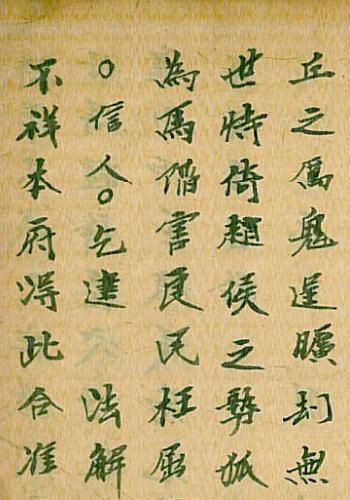 丘之厲鬼逞曠封無
世恃倚趙侯之勢狐
為馬偕害良民枉屈
○信人○乞建 法解
不祥本府得此合准